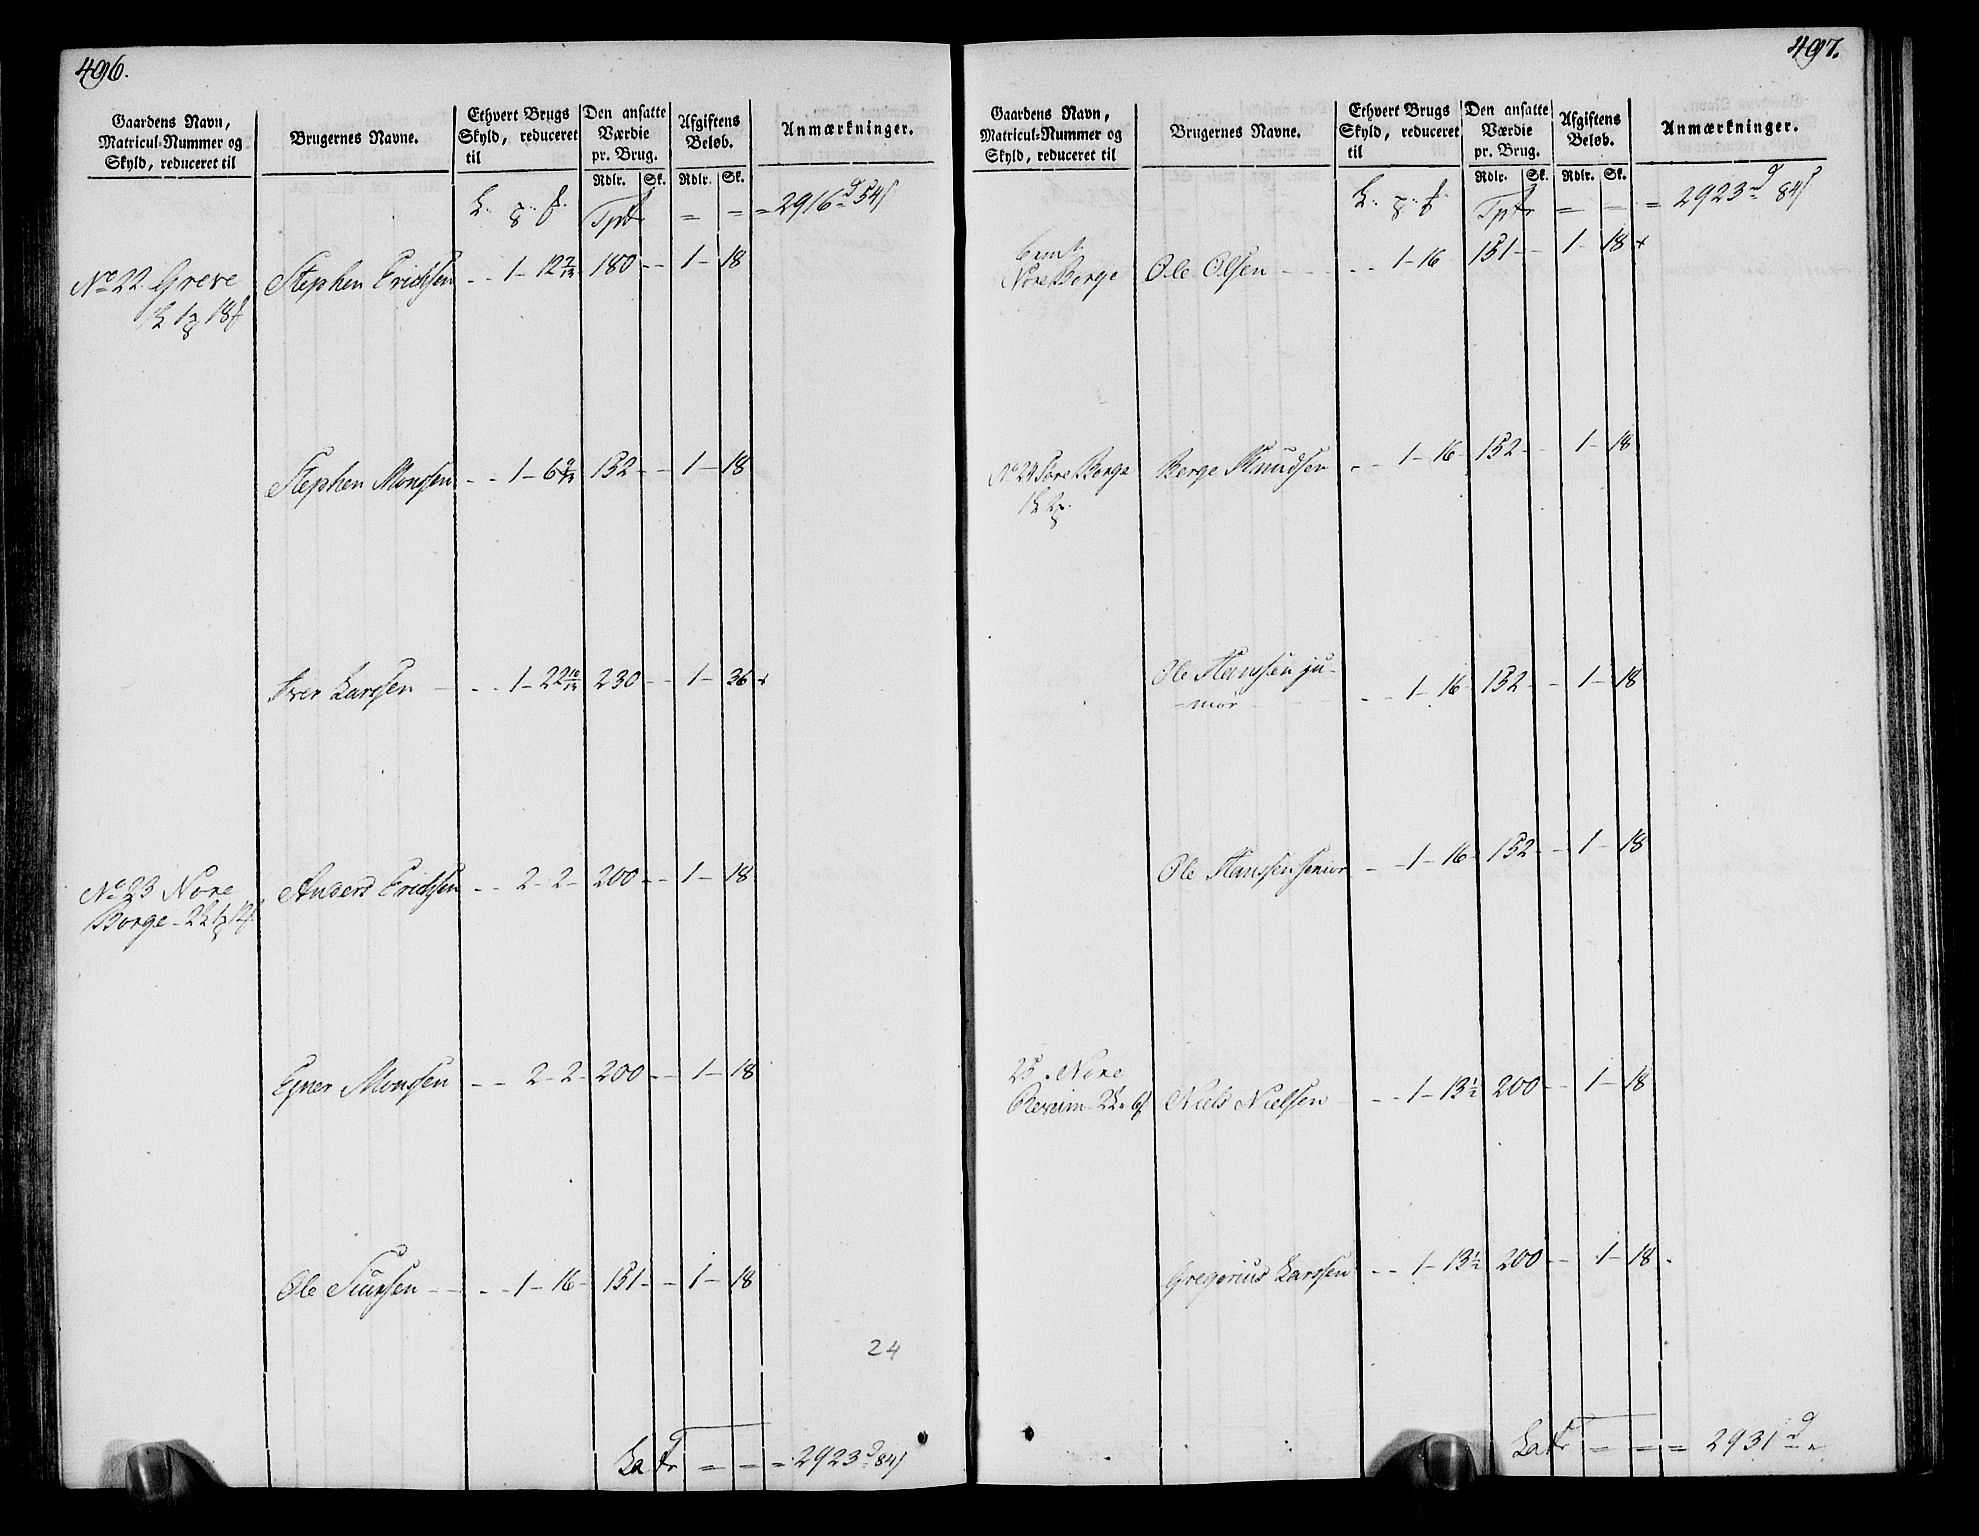 496.
Gaardens Navn, Matricul-Nummer og Skyld, reduceret til | Brugernes Navne. | Ethvert Brugs Skyld, reduceret til | Den ansatte Værdie pr. Brug. | Afgiftens Beløb. | Anmærkninger.
Rdlr. | Sk. | Rdlr. | Sk.
Tptr = = = 2916 54
No 22 Greve | Stephen Erichsen - - 1 - 12 7/13 | 180 - - | 1 - | 18
Stephen Monssen - - 1 - 6 | 152 - - | 1 - | 18
Iver Larssen - - - 1 - 22 10/13 | 230 - - | 1 - | 36
No 23 Nore | Anders Erichsen - - 2 - 2 - | 200 - - | 1 - | 18
Borge -
Egner Monssen - - 2 - 2 - | 200 - - | 1 - | 18
Ole Siursen - - - 1 - 16 - | 151 - - | 1 - | 18
24
Latr = = = 2923 84
497.
Gaardens Navn, Matricul-Nummer og Skyld, reduceret til | Brugernes Navne. | Ethvert Brugs Skyld, reduceret til | Den ansatte Værdie pr. Brug. | Afgiftens Beløb. | Anmærkninger.
Rdlr. | Sk. | Rdlr. | Sk.
Tptr = = = 2923 84
Nore Borge | Ole Olsen - - - - 1 - 16 | 151 - - | 1 - | 18
No 24 Borge | Berge Knudsen - - 1 - 16 | 152 - - | 1 - | 18
Ole Hanssen ju-
-nior - - - 1 - 16 - | 152 - - | 1 - | 18
Ole Hanssen senior - - 1 - 16 - | 152 - - | 1 - | 18
25. Nore
Niels Nielsen - - - 1 - 13 1/2 | 200 - - | 1 - | 18
Gregorius Larssen - - 1 - 13 1/2 | 200 - - | 1 - | 18
Latr = = = 2931